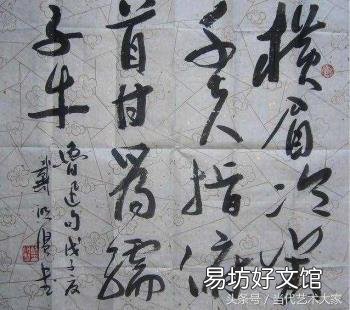 横眉冷对
千夫指俯
首甘为孺
子牛
鲁迅句戊子夏
易坊好文馆
头条号/当代艺术大家